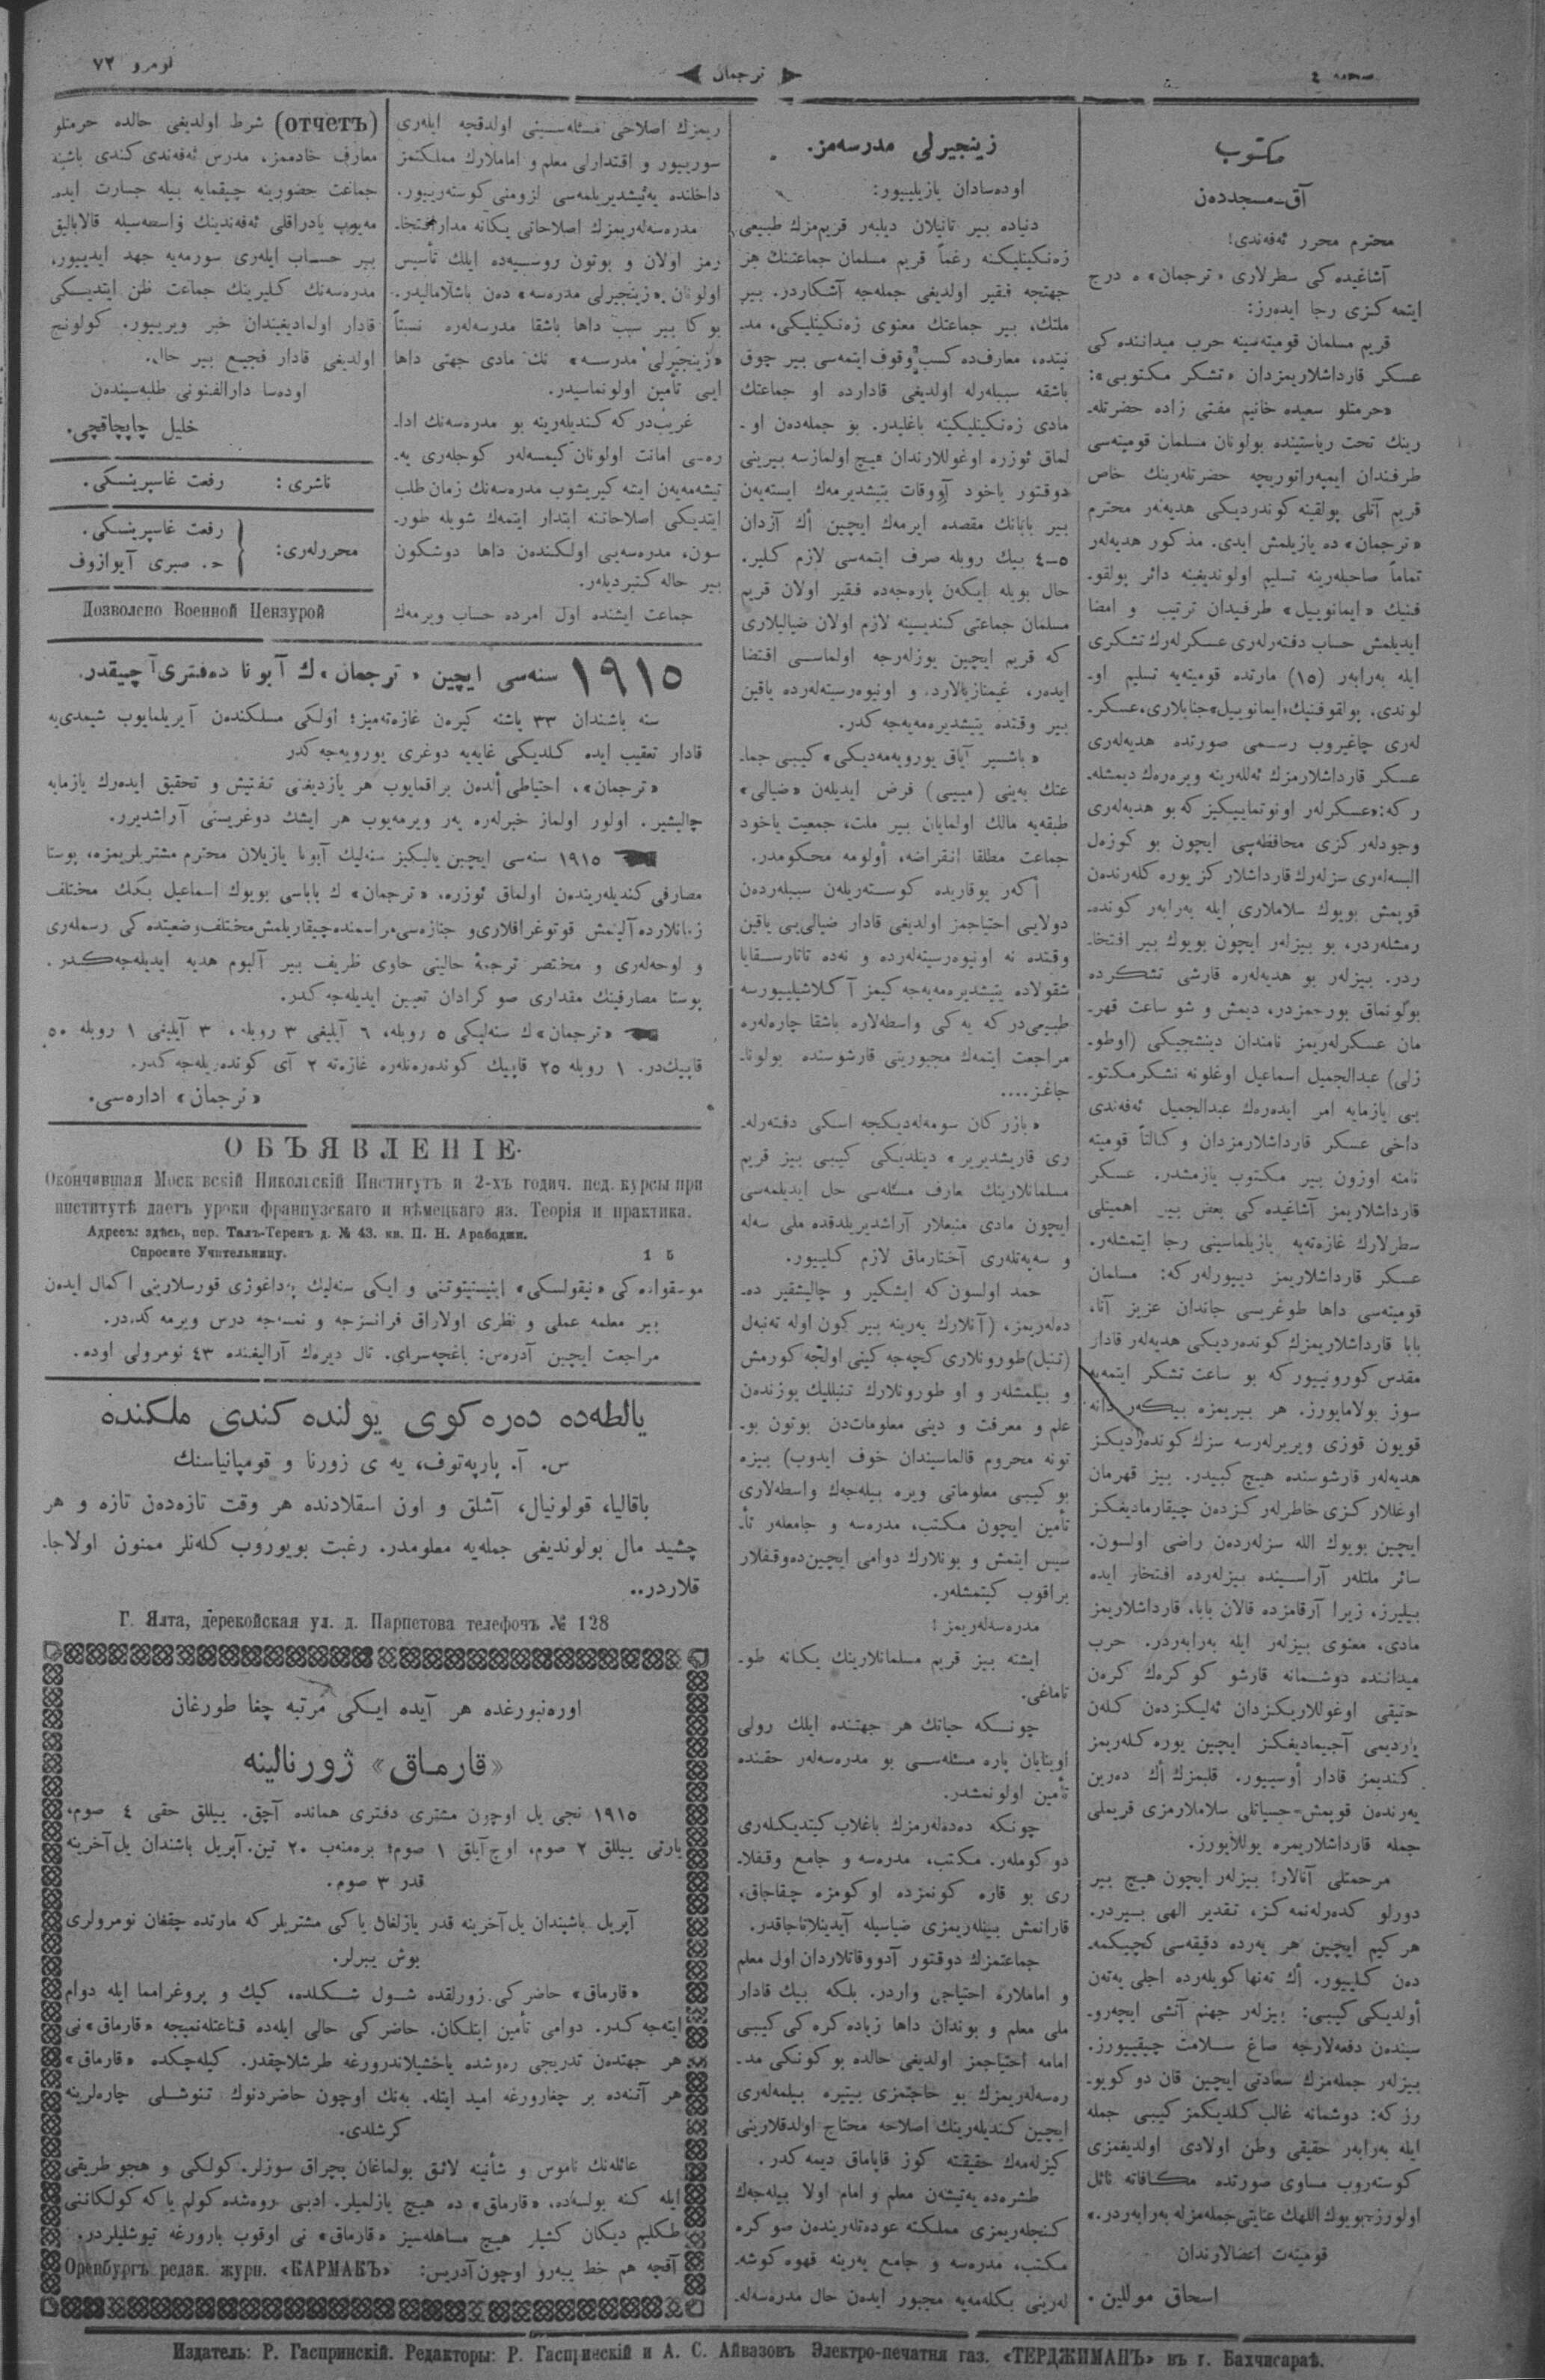 صحیفه ٤
ترجمان
نومرو ٧٢
مكتوب
آق-مسجددەن
محترم محرر ئەفەندی!
آشاغیدەكی سطرلاری «ترجمان» ە درج
ایتمەكزی رجا ایدەرز:
قریم مسلمان قومیتەسینە حرب میدانندەكی
عسكر قارداشلاریمزدان «تشكر مكتوبی»:
«حرمتلو سعیدە خانیم مفتی زادە حضرتلە-
رینك تحت ریاستیندە بولونان مسلمان قومیتەسی
طرفندان ایمپەراتوریچە حضرتلەرینك خاص
قریم آتلی پولقینە كوندردیكی هدیەلەر محترم
«ترجمان» دە یازیلمش ایدی. مذكور هدیەلەر
تماماً صاحبلەرینە تسلیم اولوندیغینە دائر پولقو-
فنیك «ایمانوییل» طرفیدان ترتیب و امضا
ایدیلمش حساب دفتەرلەری عسكرلەرك تشكری
ایلە بەرابەر (١٥) مارتدە قومیتەیە تسلیم او-
لوندی. پولقوفنیك «ایمانوییل» جنابلاری، عسكر-
لەری چاغیروب رسمی صورتدە هدیەلەری
عسكر قارداشلارمزك ئەللەرینە ویرەرەك دیمشلە-
وجودلەركزی محافظەسی ایچون بو كوزەل
قویمش بویوك سلاملاری ایلە بەرابەر كوندە-
رمشلەردر، بو بیزلەر ایچون بویوك بیر افتخا-
ردر. بیزلەر بو هدیەلەرە قارشی تشكردە
بولونماق بورجمزدر، دیمش و شو ساعت قهر-
یی یازمایە امر ایدەرەك عبدالجمیل ئەفەندی
داخی عسكر قارداشلارمزدان وكالتاً قومیتە
نامنە اوزون بیر مكتوب یازمشدر. عسكر
قارداشلاریمز آشاغیدەكی بعض بیر اهمیتلی
سطرلارك غازەتەیە یازیلماسینی رجا ایتمشلەر.
عسكر قارداشلاریمز دییورلەركە: مسلمان
قومیتەسی داها طوغریسی جاندان عزیز آنا،
بابا قارداشلاریمزك كوندەردیكی هدیەلەر قادار
مقدس كورونییوركە بو ساعت تشكر ایتمەیە
سوز بولامایورز. هر بیریمزە بیكەر دانە
قویون قوزی ویریرلەرسە سزك كوندەردیكز
هدیەلەر قارشوسندە هیچ كبیدر. بیز قهرمان
اوغللاركزی خاطرلەركزدن چیقارمادیغكز
ایچین بویوك اللە سزلەردەن راضی اولسون.
سائر ملتلەر آراسیندە بیزلەردە افتخار ایدە
بیلیرز، زیرا آرقامزدە قالان بابا، قارداشلاریمز
مادی، معنوی بیزلەر ایلە بەرابەردر. حرب
میدانندە دوشمانە قارشو كوكرەك كرەن
حقیقی اوغوللاریكزدان ئەلیكزدەن كلەن
یاردیمی آجیمادیغكز ایچین یورەكلەریمز
كندیمز قادار أوسییور. قلبمزك أك دەرین
یەرندەن قویمش حسیاتلی سلاملارمزی قریملی
جملە قارداشلاریمزە یوللایورز.
مرحمتلی آنالار! بیزلەر ایچون هیچ بیر
دورلو كدەرلەنمەكز، تقدیر الهی بیردر.
هركیم ایچین هر یەردە دقیقەسی كچیكمە-
دەن كلییور. أك تەنها كویلەردە اجلی یەتەن
أولدیكی كیبی: بیزلەر جهنم آتشی ایچەرو-
سیندەن دفعەلارجە صاغ سلامت چیقییورز.
بیزلەر جملەمزك سعادتی ایچین قان دوكویو-
رزكە: دوشمانە غالب كلدیكمز كیبی جملە
ایلە بەرابەر حقیقی وطن اولادی اولدیغمزی
كوستەروب مساوی صورتدە مكافاتە نائل
اولورز، بویوك اللهك عنایتی جملەمزلە بەرابەردر.»
قومیتەت اعضالارندان
اسحاق موللین.
زینجیرلی مدرسەمز.
اودەسادان یازیلییور:
دنیادە بیر تانیلان دیلبەر قریم‌مزك طبیعی
زەنكینلیكنە رغماً قریم مسلمان جماعتنك هر
جهتجە فقیر اولدیغی جملەجە آشكاردر. بیر
ملتك، بیر جماعتك معنوی زەنكینلیكی، مد-
نیتدە، معارف‌دە كسب وقوف ایتمەسی بیر چوق
باشقە سببلەرلە اولدیغی قاداردە او جماعتك
مادی زەنكینلیكینە باغلیدر. بو جملەدەن او-
لماق ئوزرە اوغوللارندان هیچ اولمازسە بیرینی
دوقتور یاخود آووقات یتیشدیرمەك ایستەیەن
بیر بابانك مقصدە ایرمەك ایچین أك آزدان
٥-٤ بیك روبلە صرف ایتمەسی لازم كلیر.
حال بویلە ایكەن پارەجەدە فقیر اولان قریم
مسلمان جماعتی كندیسینە لازم اولان ضیالیلاری
كە قریم ایچین یوزلەرجە اولماسی اقتضا
ایدەر، غیمنازیالارد، و اونیوەرسیتەلەردە یاقین
بیر وقتدە یتیشدیرەمەیەجەكدر.
«باشسیر آیاق یورویەمەدیكی» كیبی جما-
عتك بەینی (مییی) فرض ایدیلەن «ضیالی»
طبقەیە مالك اولمایان بیر ملت، جمعیت یاخود
جماعت مطلقا انقراضە، أولومە محكومدر.
أكەر یوقاریدە كوستەریلەن سببلەردەن
دولایی احتیاجمز اولدیغی قادار ضیالی‌یی یاقین
وقتدە نە اونیوەرسیتەلەردە و نەدە تاتارسقایا
شقولادە یتیشدیرەمەیەجەكیمز آكلاشیلییورسە
طبیعی‌دركە یەكی واسطەلارە باشقا چارەلەرە
مراجعت ایتمەك مجبوریتی قارشوسندە بولونا-
جاغز....
ری قاریشدیریر» دینلدیكی كیبی بیز قریم
مسلمانلارینك معارف مسئلەسی حل ایدیلمەسی
ایچون مادی منبعلار آراشدیریلدقدە ملی سەلە
و سەیەتلەری آختارماق لازم كلییور.
حمد اولسون كە ایشكیر و چالیشقیر دە-
دەلەریمز، (آنلارك یەرینە بیر كون اولە تەنبەل
(تنبل) طورونلاری كچەجەكینی اولجە كورمش
و بیلمشلەر و او طورونلارك تنبللیك یوزندەن
علم و معرفت و دینی معلومات‌دن بوتون بو-
تونە محروم قالماسیندان خوف ایدوب) بیزە
بو كیبی معلوماتی ویرە بیلەجەك واسطەلاری
تأمین ایچون مكتب، مدرسە و جامعلەر تأ-
سیس ایتمش و بونلارك دوامی ایچین‌دە وقفلار
براقوب كیتمشلەر.
مدرسەلەریمز!
ایشتە بیز قریم مسلمانلارینك یكانە طو-
تاماغی.
چونكە حیاتك هر جهتندە ایلك رولی
اوینایان پارە مسئلەسی بو مدرسەلەر حقندە
تأمین اولونمشدر.
چونكە دەدەلەرمزك باغلاب كیتدیكلەری
دوكوملەر. مكتب، مدرسە و جامع وقفلا-
ری بو قارە كونمزدە اوكومزە چقاجاق،
قارانمش بیینلەریمزی ضیاسیلە آیدینلاتاجاقدر.
جماعتمزك دوقتور آدووقاتلاردان اول معلم
و اماملارە احتیاجی واردر. بلكە بیك قادار
ملی معلم و بوندان داها زیادە كرەكی كیبی
امامە احتیاجمز اولدیغی حالدە بو كونكی مد-
رەسەلەریمزك بو حاجتمزی بیتیرە بیلمەلەری
ایچین كندیلەرینك اصلاحە محتاج اولدقلارینی
كیزلەمەك حقیقتە كوز قاپاماق دیمەكدر.
طشرەدە یەتیشەن معلم و امام اولا بیلەجەك
كنجلەریمزی مملكتە عودەتلەریندەن صوكرە
مكتب، مدرسە و جامع یەرینە قهوە كوشە-
لەرینی بكلەمەیە مجبور ایدەن حال مدرسەلە-
ریمزك اصلاحی مسئلەسینی اولدقجە ایلەری
سورییور و اقتدارلی معلم و اماملارك مملكتمز
داخلندە یەتیشدیریلمەسی لزومنی كوستەرییور.
مدرسەلەریمزك اصلاحاتی یكانە مدار افتخا-
رمز اولان و بوتون روسیەدە ایلك تأسیس
اولونان «زینجیرلی مدرسە» دەن باشلامالیدر.
بوكا بیر سبب داها باشقا مدرسەلەرە نسبتاً
«زینجیرلی مدرسە» نك مادی جهتی داها
ایی تأمین اولونماسیدر.
غریب‌دركە كندیلەرینە بو مدرسەنك ادا-
رەسی امانت اولونان كیمسەلەر كوجلەری یە-
تیشمەیەن ایشە كیریشوب مدرسەنك زمان طلب
ایتدیكی اصلاحاتنە ابتدار ایتمەك شویلە طور-
سون، مدرسەیی اولكندەن داها دوشكون
بیر حالە كتیردیلەر.
جماعت ایشندە اول امردە حساب ویرمەك
(отчетъ) شرط اولدیغی حالدە حرمتلو
معارف خادممز، مدرس ئەفەندی كندی باشینە
جماعت حضورینە چیقمایە بیلە جسارت ایدە-
مەیوب یادراقلی ئەفەندینك واسطەسیلە قالابالیق
بیر حساب ایلەری سورمەیە جهد ایدییور،
مدرسەنك كلیرینك جماعت ظن ایتدیكی
قادار اولمادیغیندان خبر ویرییور. كولونچ
اولدیغی قادار فجیع بیر حال.
اودەسا دارالفنونی طلبەسیندەن
خلیل چاپچاقچی.
ناشری: رفعت غاسپرینسكی.
محررلەری: رفعت غاسپرینسكی.
ح. صبری آیوازوف
Дозволено Военной Цензурой
١٩١٥ سنەسی ایچین «ترجمان»ك آبونا دەفتری آچیقدر.
سنە باشندان ٣٣ یاشنە كیرەن غازەتەمیز؛ اولكی مسلكندەن آیریلمایوب شیمدی‌یە
قادار تعقیب ایدە كلدیكی غایەیە دوغری یورویەجەكدر
«ترجمان»، احتیاطی ألدەن براقمایوب هر یازدیغنی تفتیش و تحقیق ایدەرك یازمایە
چالیشیر. اولور اولماز خبرلەرە یەر ویرمەیوب هر ایشك دوغریسنی آراشدیرر.
١٩١٥ سنەسی ایچین یالیكیز سنەلیك آبونا یازیلان محترم مشتریلریمزە، پوستا
مصارفی كندیلەریندەن اولماق ئوزرە، «ترجمان» ك باباسی بویوك اسماعیل بكك مختلف
زمانلاردە آلینمش فوتوغرافلاری و جنازەسی مراسمندە چیقاریلمش مختلف وضعیتدەكی رسملەری
و لوحەلەری و مختصر ترجمۀ حالینی حاوی ظریف بیر آلبوم هدیە ایدیلەجەكدر.
پوستا مصارفینك مقداری صوكرادان تعیین ایدیلەجەكدر.
«ترجمان»ك سنەلیكی ٥ روبلە، ٦ آیلیغی ٣ روبلە، ٣ آیلیغی ١ روبلە ٥٠
قاپیك‌در. ١ روبلە ٢٥ قاپیك كوندەرەنلەرە غازەتە ٢ آی كوندەریلەجەكدر.
«ترجمان» ادارەسی.
ОБЪЯВЛЕНІЕ.
Окончившая Московскій Никольскій Институтъ и 2-хъ годич. пед. курсы при
институтѣ даетъ уроки французскаго и нѣмецкаго яз. Теорія и практика.
Адресъ: здѣсь, пер. Талъ-Терекъ д. № 43. кв. П. Н. Арабаджи.
Спросите Учительницу. 1 5
موسقوادەكی «نیقولسكی» اینستیتوتنی و ایكی سنەلیك پەداغوژی قورسلارینی اكمال ایدەن
بیر معلمە عملی و نظری اولاراق فرانسزجە و نمسەجە درس ویرمەكدەدر.
مراجعت ایچین آدرەس: باغچەسرای. تال دیرەك آرالیغندە ٤٣ نومرولی اودە.
یالطەدە دەرەكوی یولندە كندی ملكندە
س. آ. پارپەتوف، یە ی زورنا و قومپانیاسنك
باقالیا، قولونیال، آشلق و اون اسقلادندە هر وقت تازەدەن تازە و هر
چشید مال بولوندیغی جملەیە معلومدر. رغبت بویوروب كلەنلر ممنون اولاجا-
قلاردر..
Г. Ялта, дерекойская ул. д. Парпетова телефонъ № 128
اورەنبورغدە هر آیدە ایكی مرتبە چغا طورغان
«قارماق» ژورنالینە
١٩١٥ نجی یل اوچون مشتری دفتری هماندە آچق. ییللق حقی ٤ صوم،
یارتی ییللق ٢ صوم، اوچ آیلق ١ صوم؛ برەمنەب ٢٠ تین. آپریل باشندان یل آخرینە
قدر ٣ صوم.
آپریل باشیندان یل آخرینە قدر یازلغان یاكی مشتریلركە مارتدە چققان نومرولری
بوش بیرلر.
«قارماق» حاضركی زورلقدە شول شكلدە، كیك و پروغرامما ایلە دوام
ایتەجەكدر. دوامی تأمین ایتلكان. حاضركی حالی ایلەدە قناعتلەنمیجە «قارماق» نی
هر جهتدەن تدریجی رەوشدە یاخشیلاندرورغە طرشلاچقدر. كیلەچكدە «قارماق»
هر آتنەدە بر چغارورغە امید ایتلە. یەنك اوچون حاضردنوك تنوشلی چارەلرینە
كرشلدی.
عائلەنك ناموس و شأنینە لائق بولماغان پچراق سوزلر. كولكی و هجو طریقی
ایلە كنە بولسەدە، «قارماق» دە هیچ یازلمیلر. ادبی رەوشدە كولم یاكە كولكاننی
طكلیم دیكان كشیلر هیچ مساهلەسیز «قارماق» نی اوقوب بارورغە تیوشلیلردر.
آقچە هم خط یبەرو اوچون آدریس: Оренбургъ редак. журн. «КАРМАКЪ»
Издатель: Р. Гаспринскій. Редакторы: Р. Гаспринскій и А. С. Айвазовъ Электро-печатня газ. «ТЕРДЖИМАНЪ» въ г. Бахчисараѣ.